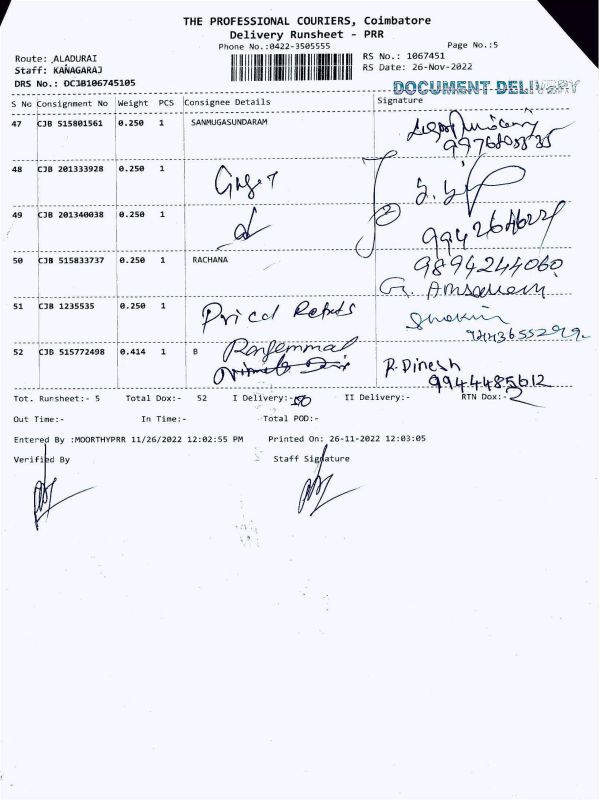 THE PROFESSIONAL COURIERS, Coimbatore
Delivery Runsheet - PRR
Phone No.:0422-3505555 Page No.:5
Route: ALADURAI RS No.: 1067451
Staff: KANAGARAJ RS Date: 26-Nov-2022
DRS No.: DCJB106745105
DOCUMENT DELIVERY
S No Consignment No Weight PCS Consignee Details Signature
47 CJB 515801561 0.250 1 SANMUGASUNDARAM
48 CJB 201333928 0.250 1
49 CJB 201340038 0.250 1
50 CJB 515833737 0.250 1 RACHANA 9894244060
51 CJB 1235535 0.250 1
52 CJB 515772498 0.414 1 B R. Dinesh
9944485612
Tot. Runsheet:- 5 Total Dox:- 52 I Delivery:-50 II Delivery:- RTN Dox:-2
Out Time:- In Time:- Total POD:-
Entered By :MOORTHYPRR 11/26/2022 12:02:55 PM Printed On: 26-11-2022 12:03:05
Verified By Staff Signature